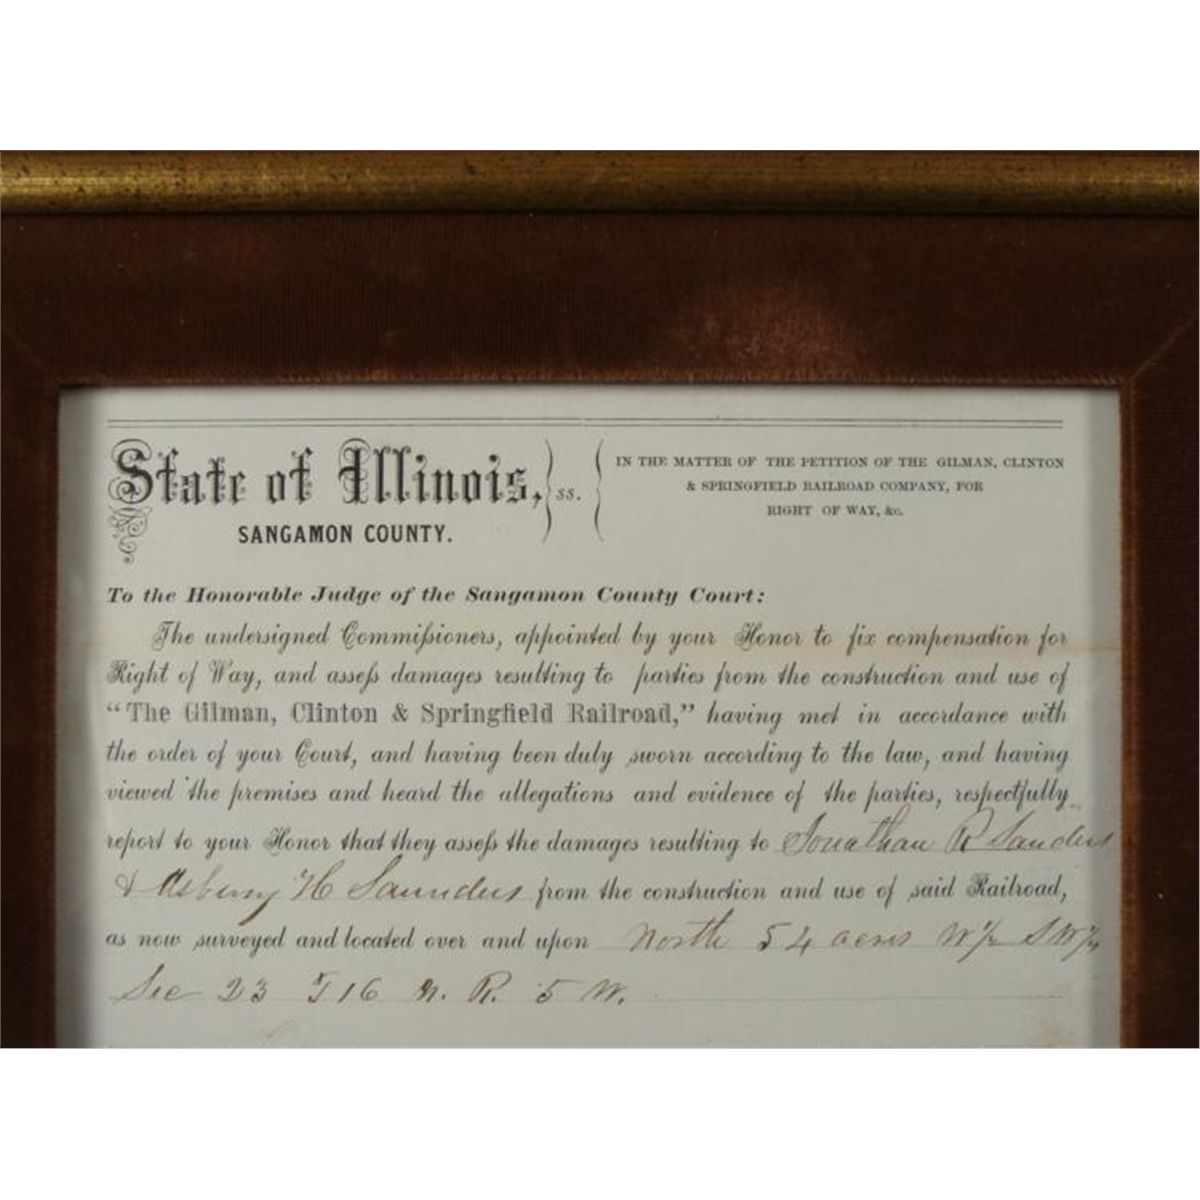 State of Illinois, ss.
SANGAMON COUNTY.
IN THE MATTER OF THE PETITION OF THE GILMAN, CLINTON
& SPRINGFIELD RAILROAD COMPANY, FOR
RIGHT OF WAY, &c.
To the Honorable Judge of the Sangamon County Court:
The undersigned Commißioners, appointed by your Honor to fix compensation for
Right of Way, and asseß damages resulting to parties from the construction and use of
"The Gilman, Clinton & Springfield Railroad," having met in accordance with
the order of your Court, and having been duly sworn according to the law, and having
viewed the premises and heard the allegations and evidence of the parties, respectfully
report to your Honor that they asseß the damages resulting to Jonathan R Sanders
& Asbury H Saunders from the construction and use of said Railroad,
as now surveyed and located over and upon North 54 acres W ½ S W ¼
Sec 23 T 16 N. R. 5 W.